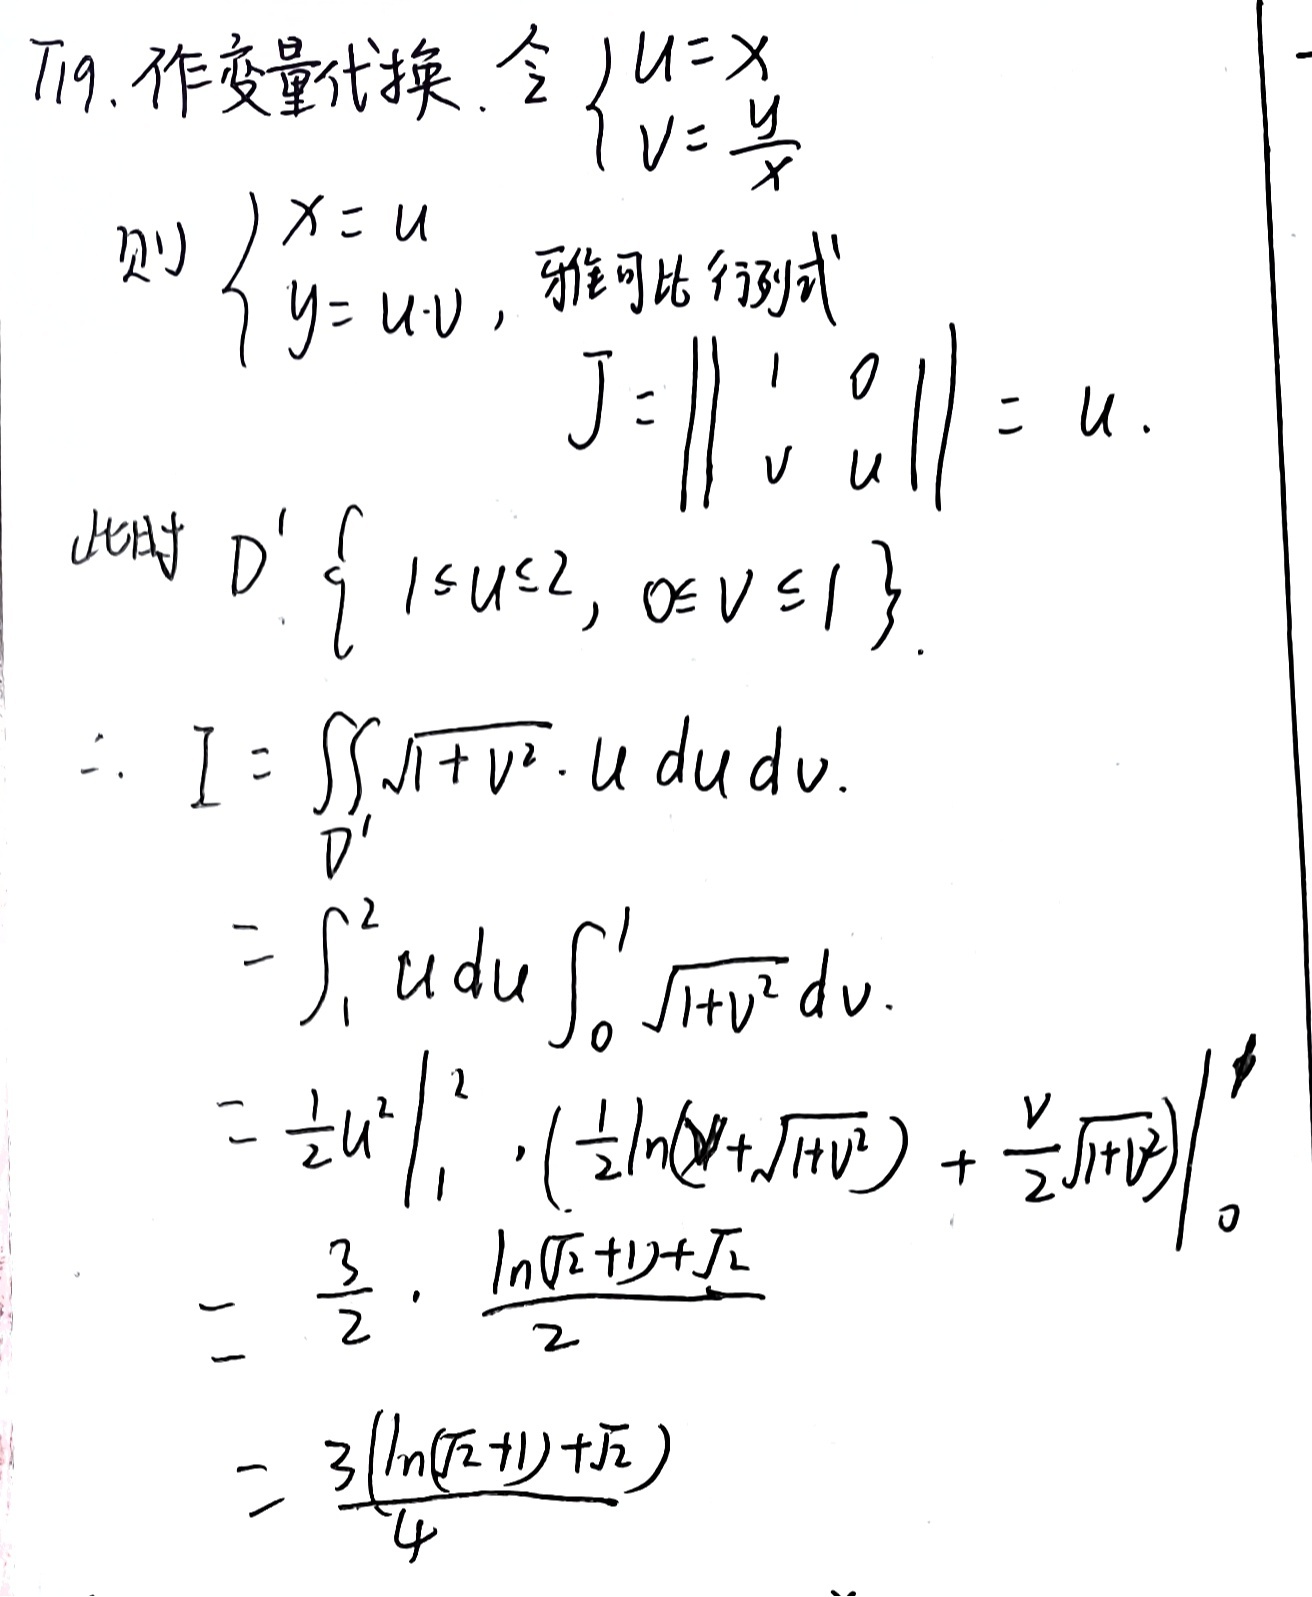 T19. 作变量代换. 令 { u = x
v = y/x
则 { x = u
y = u·v , 雅可比行列式
J = || 1 0
v u || = u .
此时 D' { 1≤u≤2, 0≤v≤1 } .
∴ I = ∬_{D'} √(1+v²) · u du dv.
= ∫₁² u du ∫₀¹ √(1+v²) dv.
= 1/2 u² |₁² · ( 1/2 ln(v+√(1+v²)) + v/2 √(1+v²) ) |₀¹
= 3/2 · (ln(√2+1)+√2)/2
= 3(ln(√2+1)+√2)/4